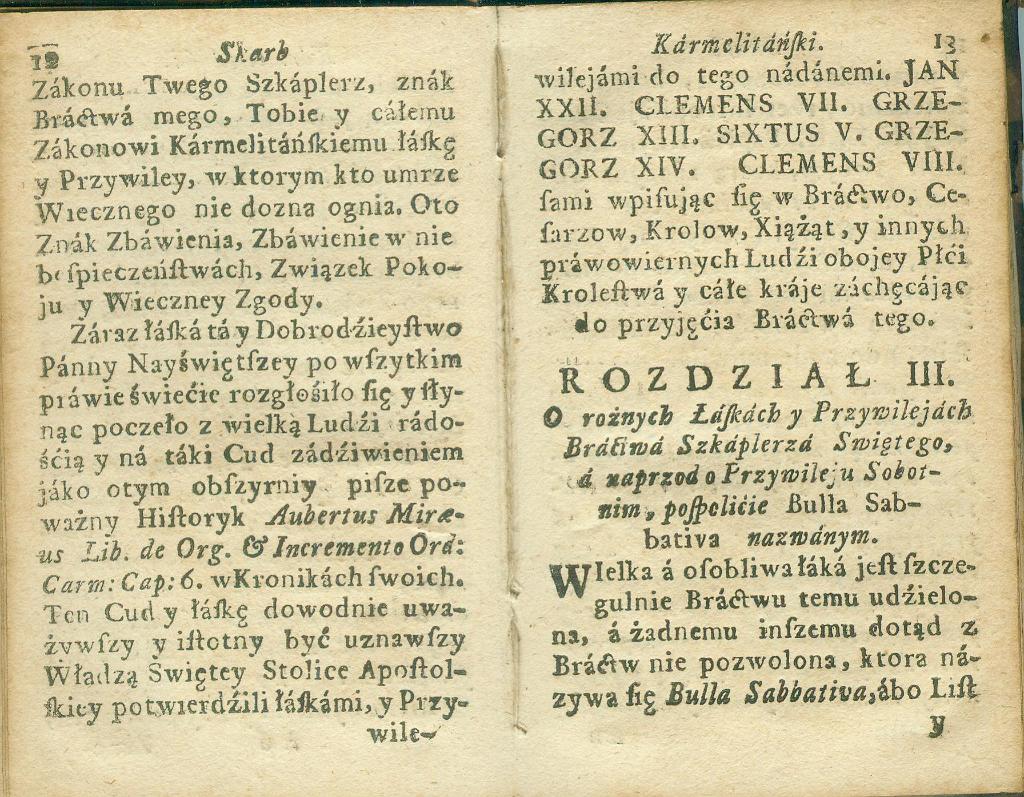 12 Skarb
Zákonu Twego Szkáplerz, znák
Bráctwá mego, Tobie y cáłemu
Zákonowi Kármelitáńſkiemu łáſkę
y Przywiley, w ktorym kto umrze
Wiecznego nie dozna ognia. Oto
Znák Zbáwienia, Zbáwienie w nie
beſpieczeńſtwách, Związek Poko-
ju y Wieczney Zgody.
Záraz łáſká tá y Dobrodźieyſtwo
Pánny Nayświętſzey po wſzytkim
práwie świećie rozgłośiło ſię y ſły-
nąc poczeło z wielką Ludźi rádo-
śćią y ná táki Cud zádźiwieniem
jáko otym obſzyrniy piſze po-
ważny Hiſtoryk Aubertus Miræ-
us Lib. de Org. & Incremento Ord:
Carm: Cap: 6. w Kronikách ſwoich.
Ten Cud y łáſkę dowodnie uwa-
żywſzy y iſtotny być uznawſzy
Władzą Swiętey Stolice Apoſtol-
ſkiey potwierdźili łáſkámi, y Przy-
wile-
Kármelitáńſki. 13
wilejámi do tego nádánemi. JAN
XXII. CLEMENS VII. GRZE-
GORZ XIII. SIXTUS V. GRZE-
GORZ XIV. CLEMENS VIII.
ſami wpiſując ſię w Bráctwo, Ce-
ſarzow, Krolow, Xiążąt, y innych
práwowiernych Ludźi obojey Płći
Kroleſtwá y cáłe kráje záchęcájąc
do przyjęćia Bráctwá tego.
ROZDZIAŁ III.
O rożnych Łáſkách y Przywilejách
Bráctwá Szkáplerzá Swiętego,
á naprzod o Przywileju Sobot-
nim, poſpolićie Bulla Sab-
bativa nazwánym.
WIelka á oſobliwa łáká jeſt ſzcze-
gulnie Bráctwu temu udźielo-
na, á żadnemu inſzemu dotąd z
Bráctw nie pozwolona, ktora ná-
zywa ſię Bulla Sabbativa, ábo Liſt
y